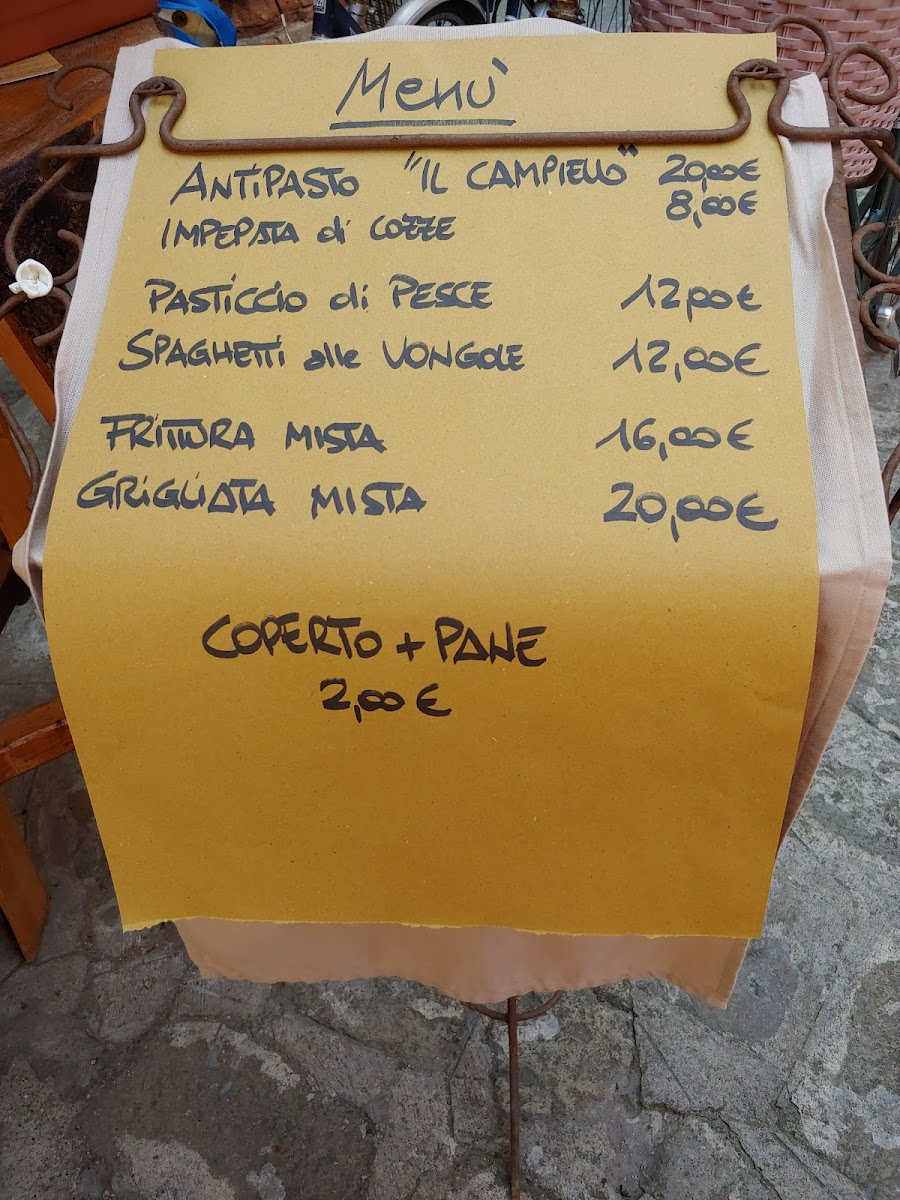 Menù
ANTIPASTO "IL CAMPIELLO" 20,00€
IMPEPATA di COZZE 8,00€
PASTICCIO di PESCE 12,00€
SPAGHETTI alle VONGOLE 12,00€
FRITTURA MISTA 16,00€
GRIGLIATA MISTA 20,00€
COPERTO + PANE
2,00€